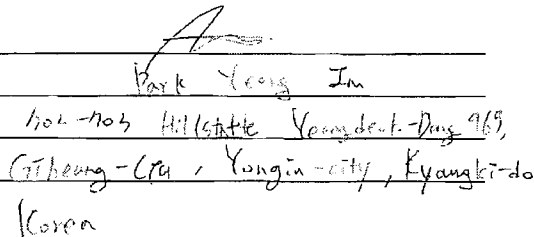 Park Yeong Im
Hillstate Yeongdeok-Dong 969,
Giheung-Gu, Yongin-city, Kyungki-do
Korea